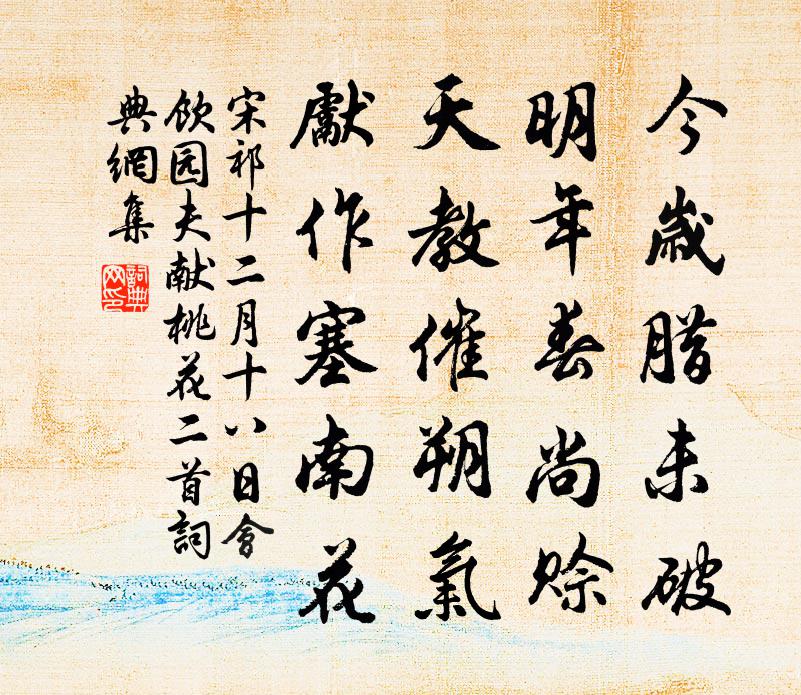 今歲腊未破
明年春尚赊
天教催朔氣
獻作塞南花
宋祁十二月十八日會
飲园夫献桃花二首詞
典網集
詞典
网印